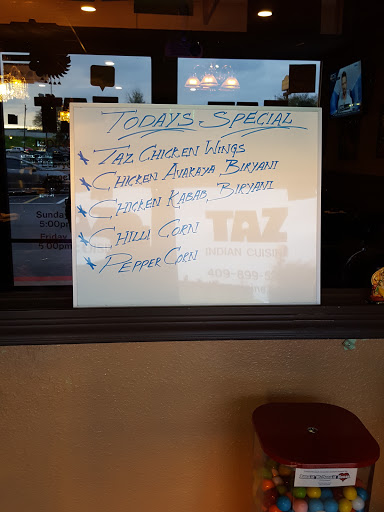 TODAYS SPECIAL
* TAZ CHICKEN WINGS
* CHICKEN AVAKAYA BIRYANI
* CHICKEN KABAB BIRYANI
* CHILLI CORN
* PEPPER CORN
TAZ
INDIAN CUISINE
409-899-5
Sunday
5:00p
Friday
5:00pm